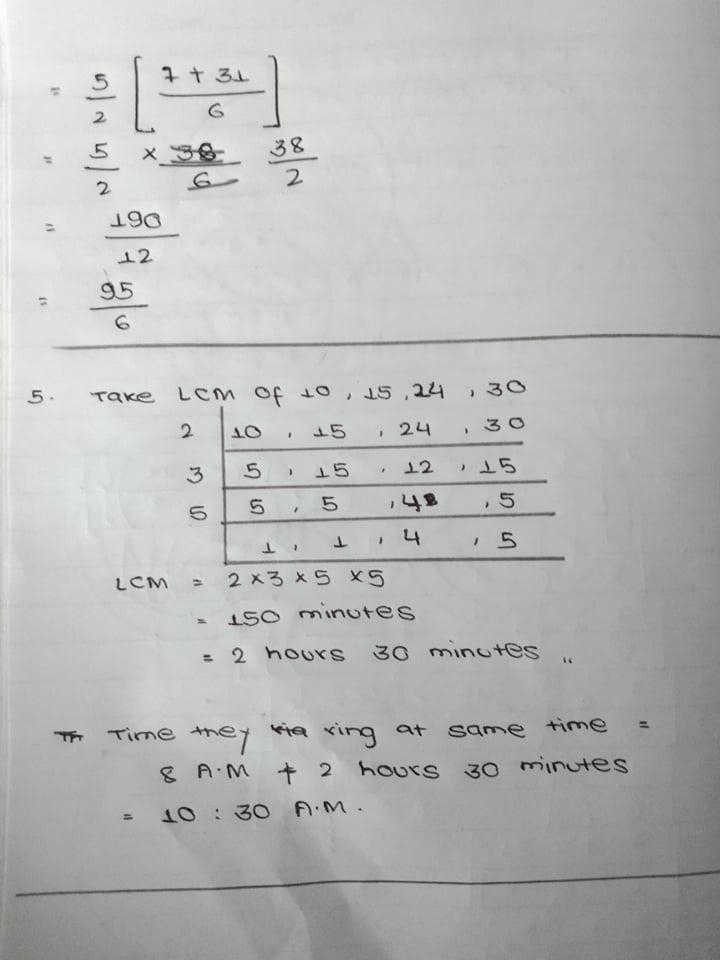 = 5/2 [ 7 + 31 / 6 ]
= 5/2 × 38/6 38/2
= 190/12
= 95/6
5. Take LCM of 10, 15, 24, 30
2 | 10, 15, 24, 30
3 | 5, 15, 12, 15
5 | 5, 5, 4, 5
1, 1, 4, 5
LCM = 2×3×5×5
= 150 minutes
= 2 hours 30 minutes
Time they ring at same time =
8 A.M + 2 hours 30 minutes
= 10:30 A.M.